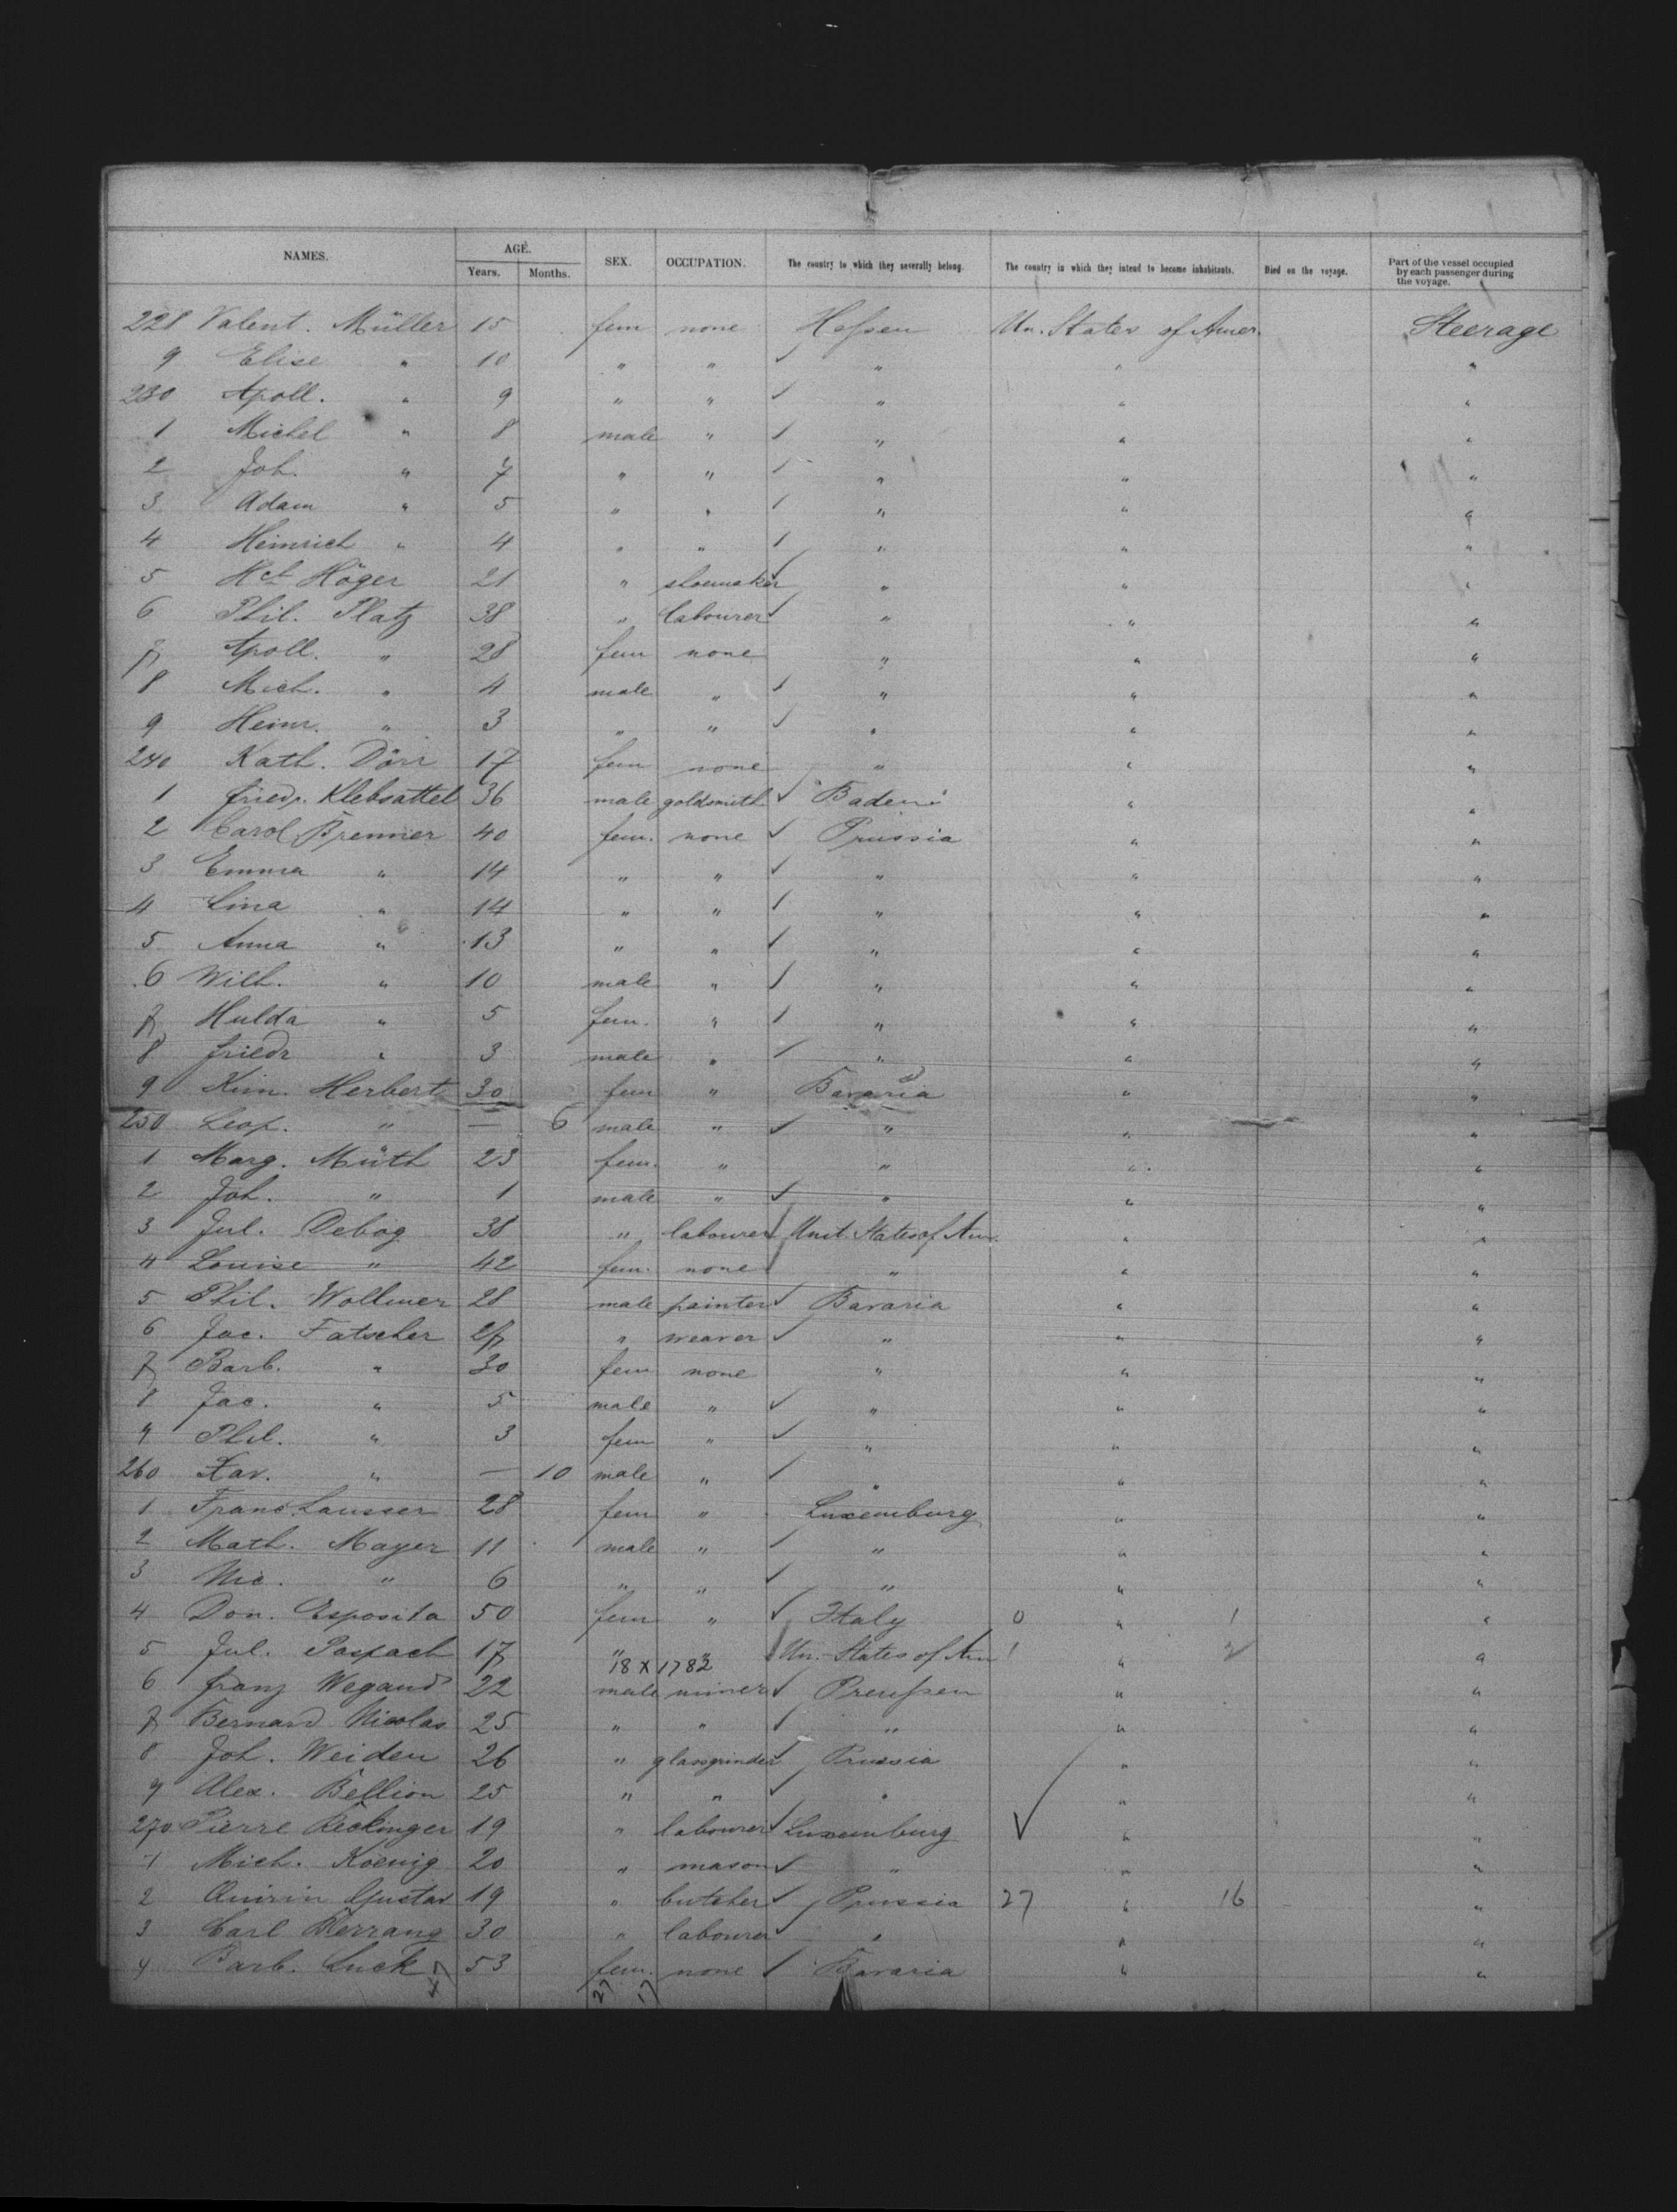 NAMES. AGE. SEX. OCCUPATION. The country to which they severally belong. The country in which they intend to become inhabitants. Died on the voyage. Part of the vessel occupied by each passenger during the voyage.
Years. Months.
228 Valent. Müller 15 fem none Hessen Un. States of Amer. Steerage
9 Elise " 10 " " ✓ " " "
230 Apoll. " 9 " " ✓ " " "
1 Michel " 8 male " ✓ " " "
2 Joh. " 7 " " ✓ " " "
3 Adam " 5 " " ✓ " " "
4 Heinrich " 4 " " ✓ " " "
5 Hch Höger 21 " shoemaker ✓ " " "
6 Phil. Platz 38 " labourer ✓ " " "
7 Apoll. " 28 fem none " " "
8 Mich. " 4 male " ✓ " " "
9 Heinr. " 3 " " ✓ " " "
240 Kath. Dörr 17 fem none " " "
1 Friedr. Klebsattel 36 male goldsmith ✓ Baden " "
2 Carol Bremier 40 fem. none ✓ Prussia " "
3 Emma " 14 " " ✓ " " "
4 Lina " 14 " " ✓ " " "
5 Anna " 13 " " ✓ " " "
6 Wilh. " 10 male " ✓ " " "
7 Hulda " 5 fem. " ✓ " " "
8 Friedr " 3 male " ✓ " " "
9 Kun. Herbert 30 fem " Bavaria " "
250 Leop. " — 6 male " ✓ " " "
1 Marg. Müth 23 fem. " " " "
2 Joh. " 1 male " ✓ " " "
3 Jul. Debog 38 " labourer ✓ Unit. States of Am. " "
4 Louise " 42 fem. none " " "
5 Phil. Wollmer 28 male painter ✓ Bavaria " "
6 Jac. Fatscher 27 " weaver ✓ " " "
7 Barb. " 30 fem none " " "
8 Jac. " 5 male " ✓ " " "
9 Phil. " 3 fem " ✓ " " "
260 Xav. " — 10 male " ✓ " " "
1 Franc. Lausser 28 fem " Luxemburg " "
2 Math. Mayer 11 male " ✓ " " "
3 Nic. " 6 " " ✓ " " "
4 Don. Esposita 50 fem " ✓ Italy 0 " 1 "
5 Jul. Paspach 17 " " Un. States of Am 1 " 2 "
18 x 1782
6 Franz Wegand 22 male miner ✓ Preussen " "
7 Bernard Nicolas 25 " " ✓ " " "
8 Joh. Weiden 26 " glassgrinder ✓ Prussia " "
9 Alex. Bellion 25 " " ✓ " " "
270 Pierre Reckinger 19 " labourer ✓ Luxemburg ✓ " "
1 Mich. Koenig 20 " mason ✓ " " "
2 Quirin Gustav 19 " butcher ✓ Prussia 27 " 16 "
3 Carl Herrang 30 " labourer ✓ " " "
4 Barb. Luck 53 fem. none ✓ Bavaria " "
47 27 17